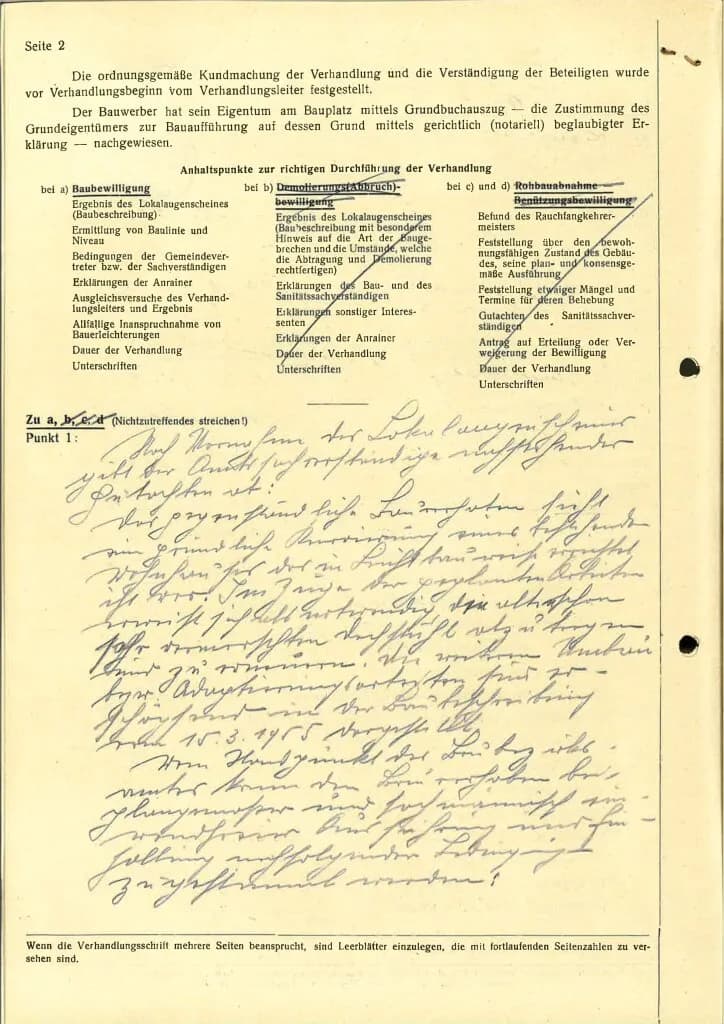 Seite 2
Die ordnungsgemäße Kundmachung der Verhandlung und die Verständigung der Beteiligten wurde
vor Verhandlungsbeginn vom Verhandlungsleiter festgestellt.
Der Bauwerber hat sein Eigentum am Bauplatz mittels Grundbuchauszug — die Zustimmung des
Grundeigentümers zur Bauaufführung auf dessen Grund mittels gerichtlich (notariell) beglaubigter Er-
klärung — nachgewiesen.
Anhaltspunkte zur richtigen Durchführung der Verhandlung
bei a) Baubewilligung
Ergebnis des Lokalaugenscheines
(Baubeschreibung)
Ermittlung von Baulinie und
Niveau
Bedingungen der Gemeindever-
treter bzw. der Sachverständigen
Erklärungen der Anrainer
Ausgleichsversuche des Verhand-
lungsleiters und Ergebnis
Allfällige Inanspruchnahme von
Bauerleichterungen
Dauer der Verhandlung
Unterschriften
bei b) Demolierungs(Abbruch)-
bewilligung
Ergebnis des Lokalaugenscheines
(Baubeschreibung mit besonderem
Hinweis auf die Art der Bauge-
brechen und die Umstände, welche
die Abtragung und Demolierung
rechtfertigen)
Erklärungen des Bau- und des
Sanitätssachverständigen
Erklärungen sonstiger Interes-
senten
Erklärungen der Anrainer
Dauer der Verhandlung
Unterschriften
bei c) und d) Rohbauabnahme
Benützungsbewilligung
Befund des Rauchfangkehrer-
meisters
Feststellung über den bewoh-
nungsfähigen Zustand des Gebäu-
des, seine plan- und konsensge-
mäße Ausführung
Feststellung etwaiger Mängel und
Termine für deren Behebung
Gutachten des Sanitätssachver-
ständigen
Antrag auf Erteilung oder Ver-
weigerung der Bewilligung
Dauer der Verhandlung
Unterschriften
Zu a, b, c, d (Nichtzutreffendes streichen!)
Punkt 1:
Nach Vornahme des Lokalaugenscheines
gibt der Amtssachverständige nachstehendes
Gutachten ab:
Das gegenständliche Bauvorhaben sieht
eine gründliche Renovierung eines bestehenden
Wohnhauses das in Leichtbauweise errichtet
ist vor. Im Zuge der geplanten Arbeiten
erweist sich als notwendig, den alten schon
sehr vermorschten Dachstuhl abzutragen
und zu erneuern. Die weiteren Umbau
bzw. Adaptierungsarbeiten sind er-
schöpfend in der Baubeschreibung
vom 15.3.1955 dargestellt.
Vom Standpunkt des Baubezirks-
amtes kann dem Bauvorhaben bei
plangemässer und fachmännisch ein-
wandfreier Ausführung und Ein-
haltung nachfolgender
zugestimmt werden:
Wenn die Verhandlungsschrift mehrere Seiten beansprucht, sind Leerblätter einzulegen, die mit fortlaufenden Seitenzahlen zu ver-
sehen sind.